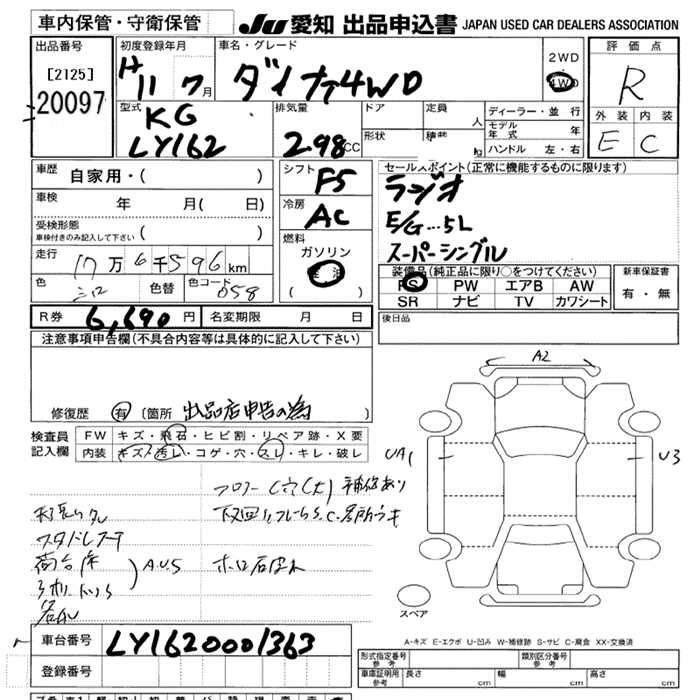 車内保管・守衛保管
JU 愛知 出品申込書 JAPAN USED CAR DEALERS ASSOCIATION
出品番号
[2125]
20097
初度登録年月
H 11 7月
車名・グレード
ダイナ 4WD
2WD
4WD
評価点
R
外装 内装
E C
型式
KG
LY162
排気量
2.98 CC
ドア
形状
定員
人
積
kg
ディーラー・並行
モデル年式 年
ハンドル 左・右
車歴
自家用・( )
車検
年 月( 日)
受検形態
車検付きのみ記入して下さい( )
走行
17万6千596km
色
シロ
色替
色コード
058
シフト
F5
冷房
AC
燃料
ガソリン
軽油
( )
セールスポイント(正常に機能するものに限ります)
ラジオ
E/G…5L
スーパーシングル
装備品(純正品に限り○をつけてください)
PS PW エアB AW
SR ナビ TV カワシート
新車保証書
有・無
R券 6,690円
名変期限 月 日
後日品
注意事項申告欄(不具合内容等は具体的に記入して下さい)
修復歴 有 〔箇所 出品店申告の為 〕
検査員記入欄
FW キズ・飛石・ヒビ割・リペア跡・X要
内装 キズ・汚レ・コゲ・穴・スレ・キレ・破レ
フロアー C穴(大) 補修あり
下回り
A.U.S
A2
UA1
U3
スペア
A-キズ E-エクボ U-凹み W-補修跡 S-サビ C-腐食 XX-交換済
車台番号 LY1620001363
登録番号
形式指定番号 参考
類別区分番号 参考
車庫証明用 参考
長さ cm
幅 cm
高さ cm